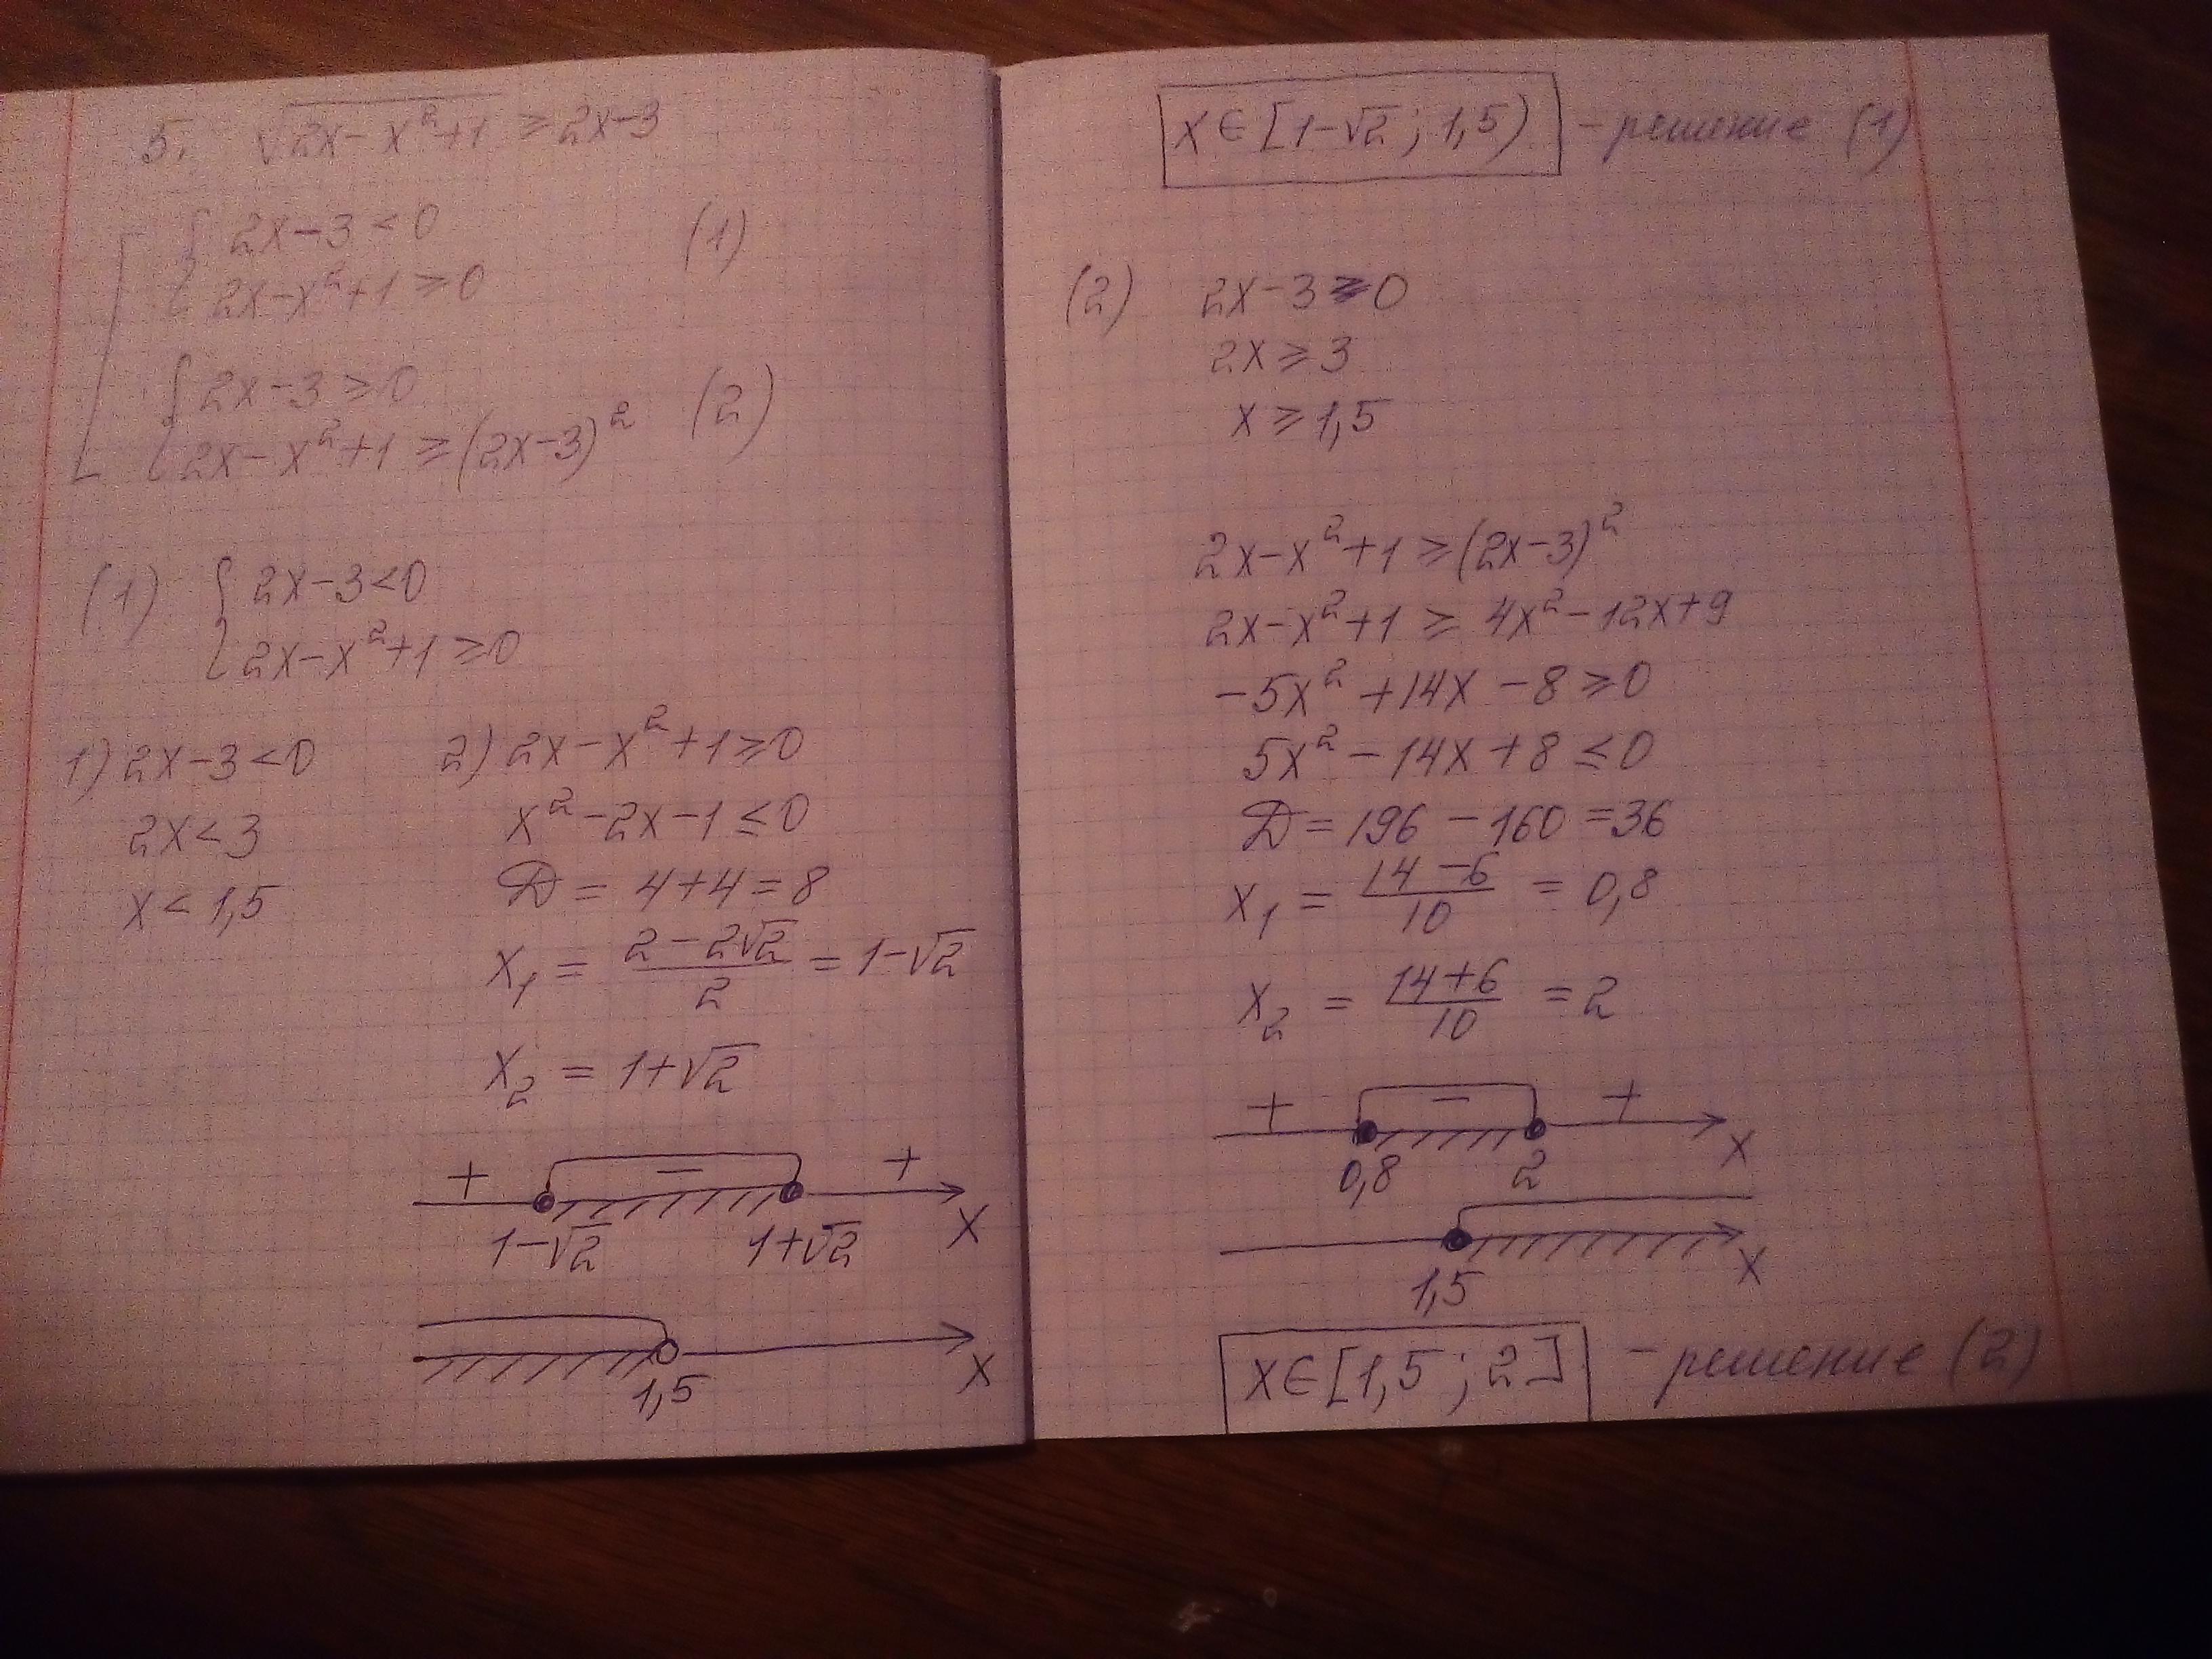 5. √(2x-x²+1) ≥ 2x-3
[ { 2x-3<0
2x-x²+1≥0 (1)
{ 2x-3≥0
2x-x²+1≥(2x-3)² (2)
(1) { 2x-3<0
2x-x²+1≥0
1) 2x-3<0
2x<3
x<1,5
2) 2x-x²+1≥0
x²-2x-1≤0
D = 4+4=8
x₁ = (2-2√2)/2 = 1-√2
x₂ = 1+√2
+ − +
1-√2 1+√2 x
1,5 x
x∈[1-√2; 1,5) - решение (1)
(2) 2x-3≥0
2x≥3
x≥1,5
2x-x²+1≥(2x-3)²
2x-x²+1≥4x²-12x+9
-5x²+14x-8≥0
5x²-14x+8≤0
D=196-160=36
x₁ = (14-6)/10 = 0,8
x₂ = (14+6)/10 = 2
+ − +
0,8 2 x
1,5 x
x∈[1,5; 2] - решение (2)